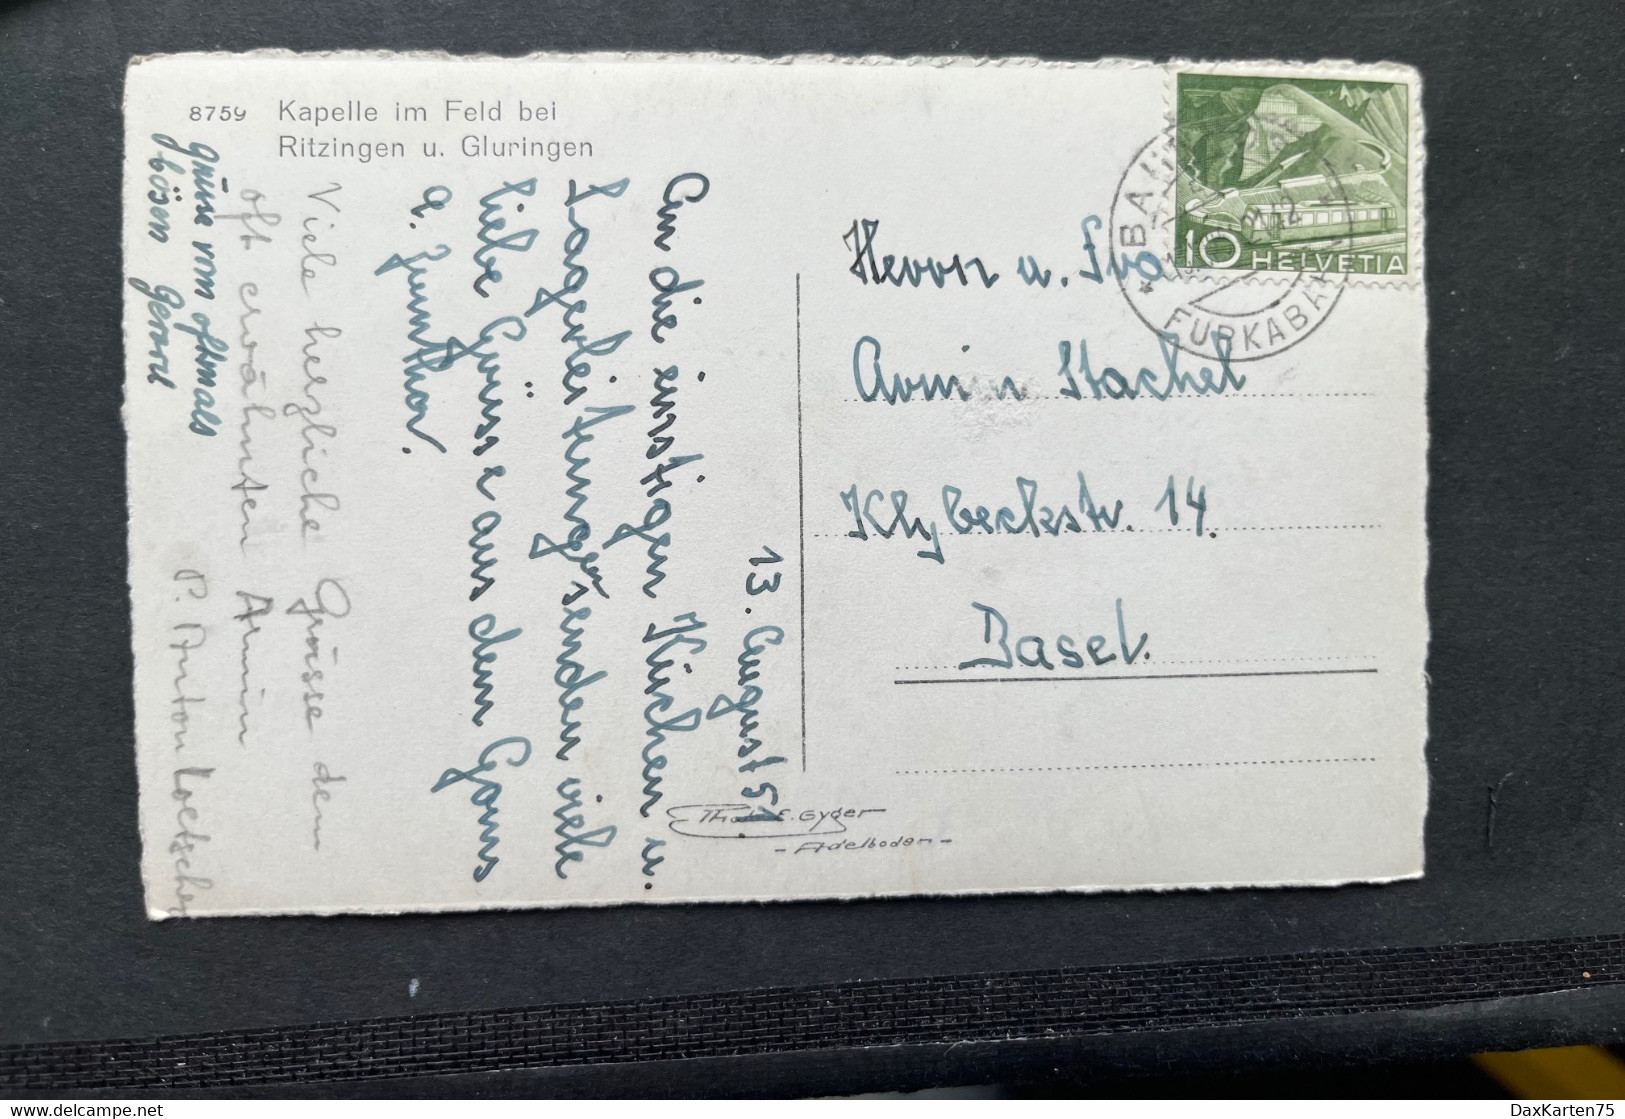 8759 Kapelle im Feld bei
Ritzingen u. Gluringen
13. August 51.
An die einstigen Küchen u.
Lagerleitungen senden viele
liebe Grüsse aus dem Goms
a. Zumthor.
Viele herzliche Grüsse dem
oft erwähnten Armin
P. Anton Loetscher
Grüsse vom oftmals
bösen Gerard
Herrn u. Fra
Armin Stachel
Klybeckstr. 14.
Basel.
Photo E. Gyger
- Adelboden -
10 HELVETIA
FURKABAHN
DaxKarten75